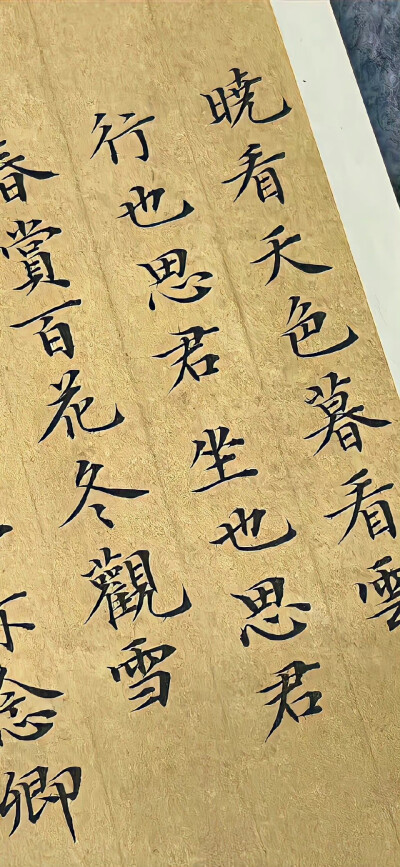 晓看天色暮看雲
行也思君坐也思君
春赏百花冬觀雪
念卿